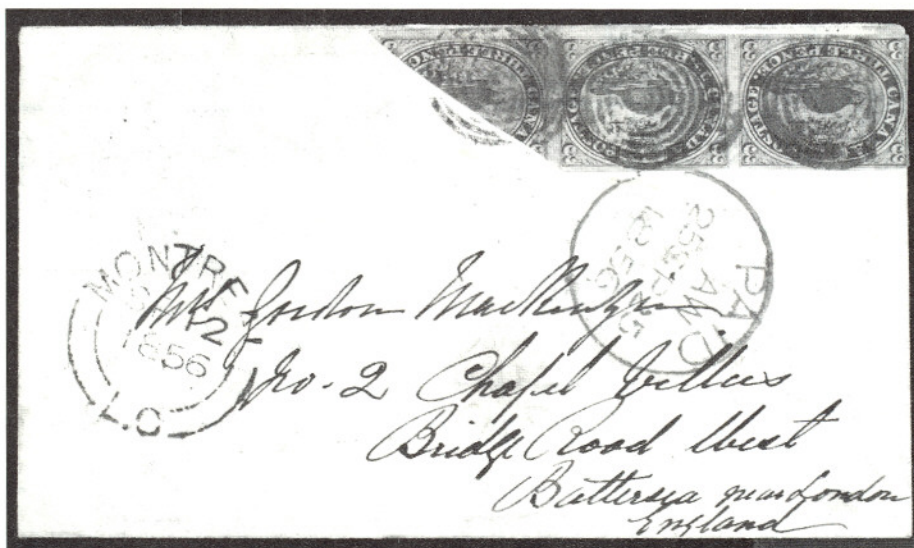 POSTAGE THREE PENCE CANADA
POSTAGE THREE PENCE CANADA
PAID
AN
25 SP 25
1856
MONTREAL
12
1856
L.C
Mrs Gordon MacKenzie
No. 2 Chapel Villas
Bridge Road West
Battersea near London
England